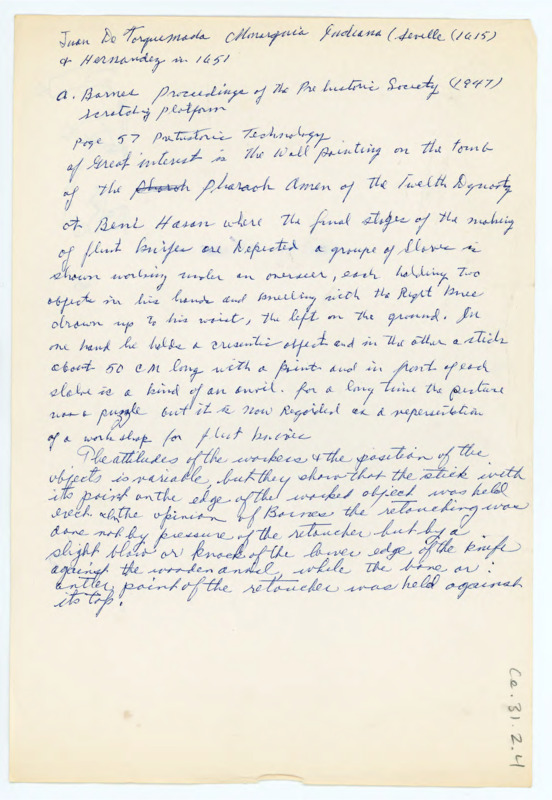 Juan De Torquemada Monarquia Indiana (Seville (1615)
& Hernandez in 1651
A. Barnes Proceedings of the Prehistoric Society (1947)
scratching platform
Page 57 Prehistoric Technology
of Great interest is the Wall painting on the tomb
of the pharoh pharaoh Amen of the Twelth Dynasty
at Beni Hasan where the final stages of the making
of flint knifes are Depicted a groupe of Slaves is
shown working under an overseer, each holding two
objects in his hands and kneeling with the Right knee
drawn up to his waist, the left on the ground. In
one hand he holds a cresentic object and in the other a stick
about 50 CM long with a point and in front of each
slave is a kind of an anvil. for a long time the picture
was a puzzle but it is now Regarded as a representation
of a workshop for flint knives
The attitudes of the workers & the position of the
objects is variable, but they show that the stick with
its point on the edge of the worked object was held
erect. In the opinion of Barnes the retouching was
done not by pressure of the retoucher but by a
slight blow or knock of the lower edge of the knife
against the wooden anvil, while the bone or
antler point of the retoucher was held against
its top.
Ca. 31.2.4